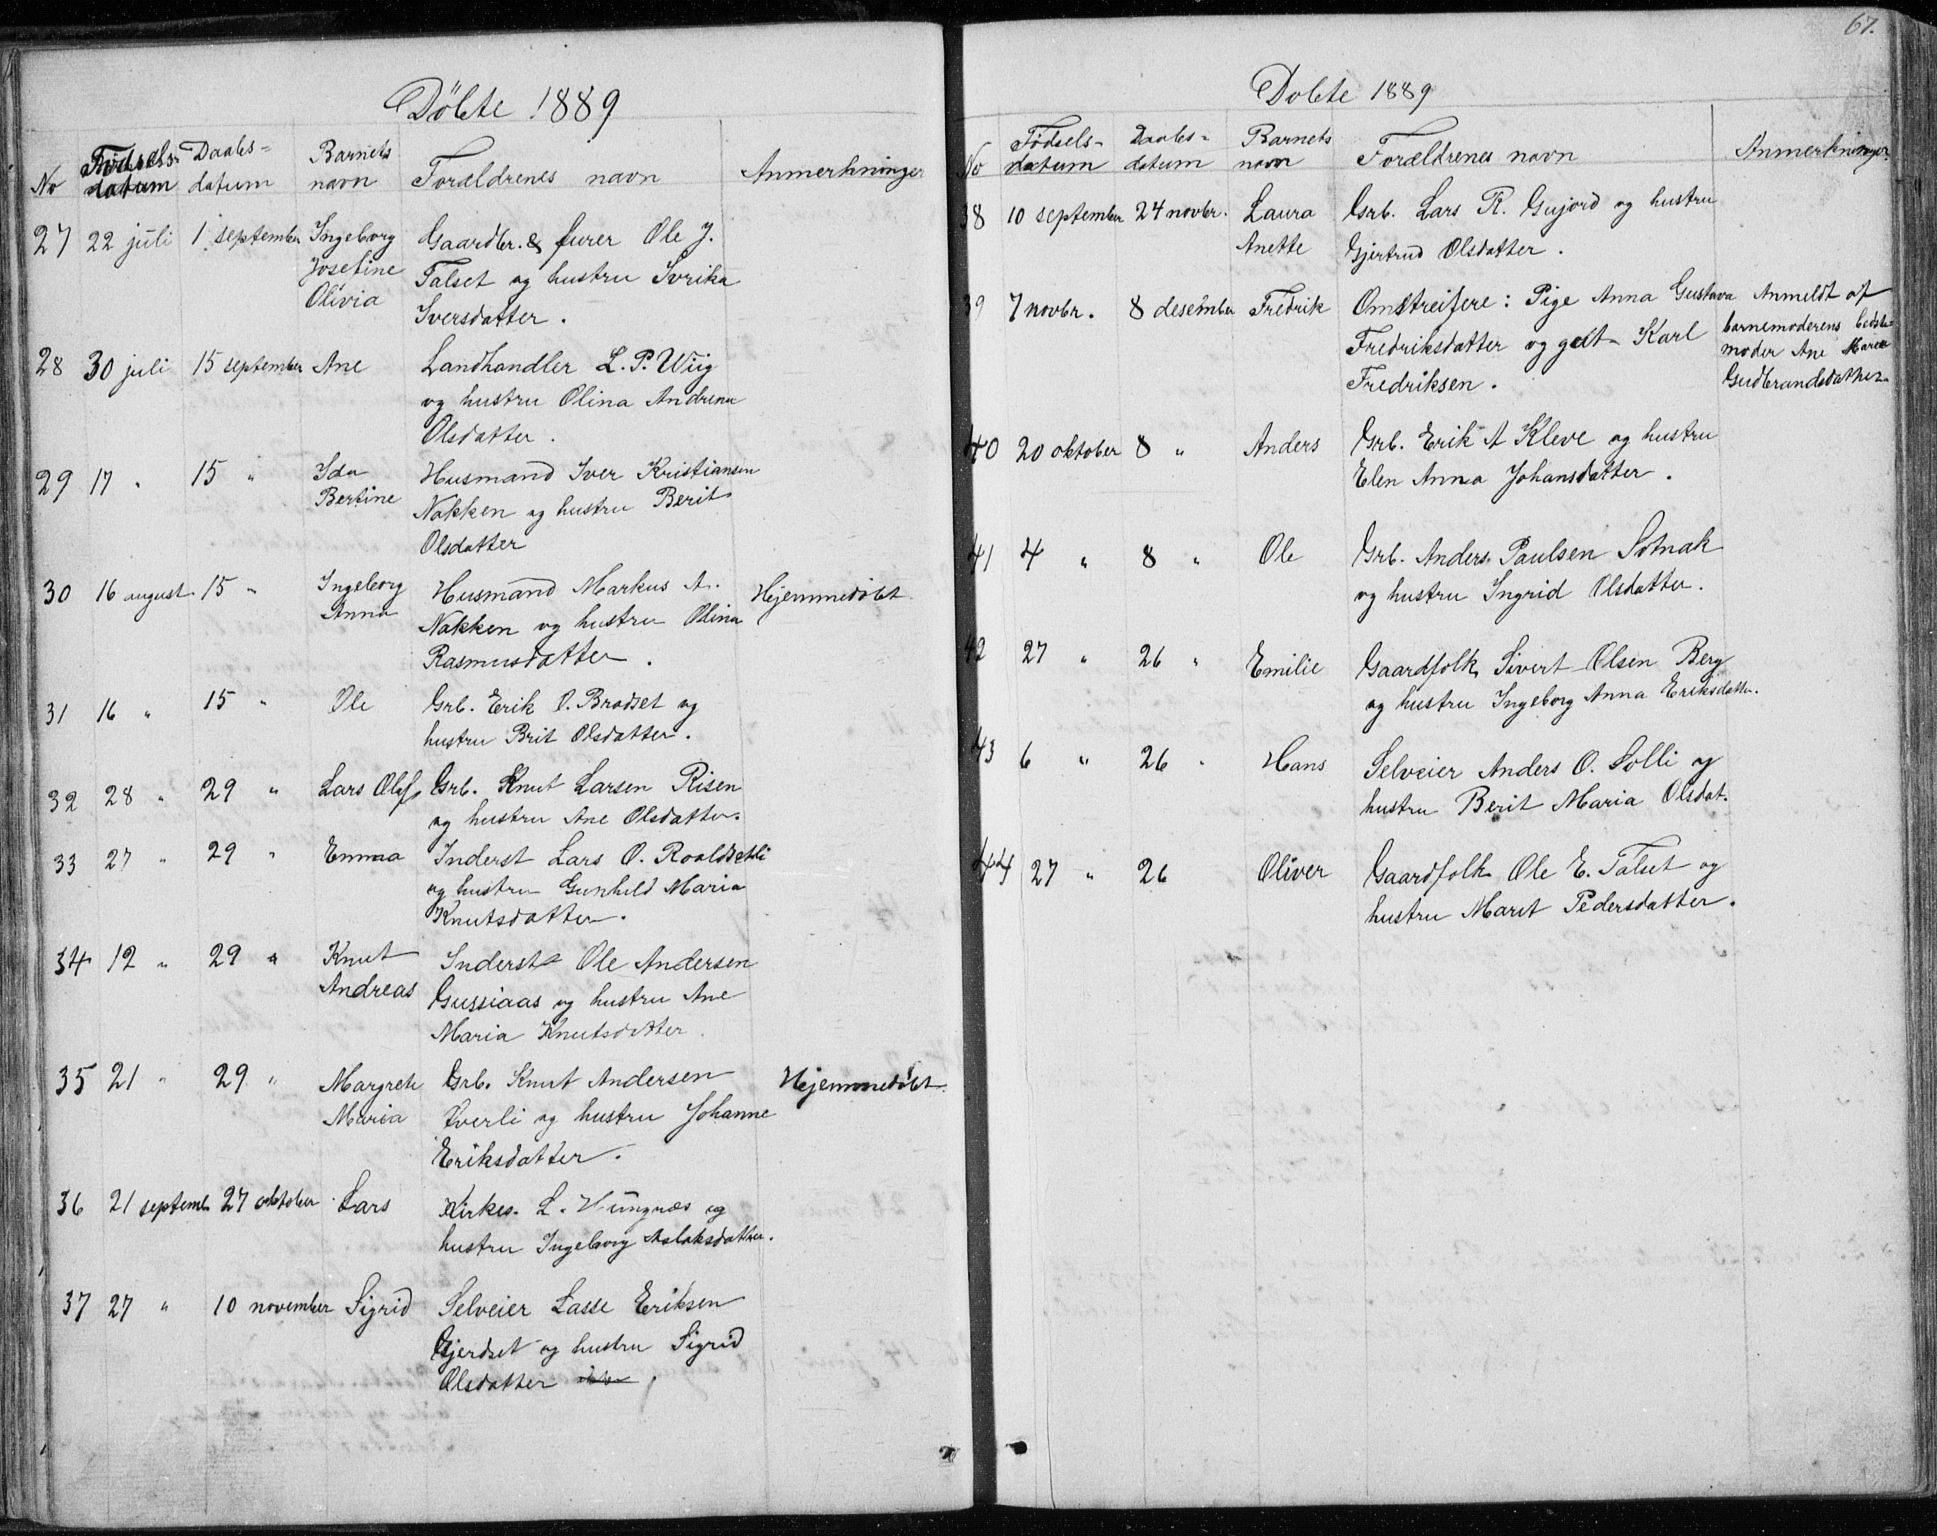 Döbte 1889
No Fødsels-datum Daabs=datum Barnets navn Forældrenes navn Anmerkninger
27 22 juli 1. september Ingeborg Gaardbr. & furer Ole J.
Josefine Talset og hustru Ivrika
Olivia Iversdatter.
28 30 juli 15 september Ane Landhandler L. P. Wiig
og hustru Olina Andrena
Olsdatter.
29 17 " 15 " Ida Husmand Iver Kristiansen
Bertine Nakken og hustru Berit
Olsdatter
30 16 august 15 " Ingeborg Husmand Markus A. Hjemmedøbt
Anna Nakken og hustru Olina
Rasmusdatter.
31 16 " 15 " Ole Grb. Erik O. Brodset og
hustru Brit Olsdatter.
32 28 " 29 " Lars Olof Grb. Knut Larsen Risen
og hustru Ane Olsdatter.
33 27 " 29 " Emma Inderst Lars O. Roaldsetli
og hustru Gunhild Maria
Knutsdatter.
34 12 " 29 " Knut Inderst Ole Andersen
Andreas Gussiaas og hustru Ane
Maria Knutsdatter
35 21 " 29 " Margrete Grb. Knut Andersen Hjemmedøbt
Maria Tverli og hustru Johanne
Eriksdatter.
36 21 septemb. 27 oktober Lars Kirkes. L. Hungnæs og
hustru Ingeborg Aslaksdatter.
37 27 " 10 november Sigrid Selveier Lasse Eriksen
Gjerdset og hustru Sigrid
Olsdatter
67.
Dobte 1889
No Fødsels-datum Daabs=datum Barnets navn Forældrenes navn Anmerkninger
38 10 september 24 novbr. Laura Grb. Lars R. Gujord og hustru
Anette Gjertrud Olsdatter.
39 7 novbr. 8 desember Fredrik Omstreifere: Pige Anna Gustava Anmeldt af
Fredriksdatter og gift Karl barnemoderens bedste=
Fredriksen. moder Ane Marea
Gudbrandsdatter
40 20 oktober 8 " Anders Grb. Erik A Kleve og hustru
Elen Anna Johansdatter.
41 4 " 8 " Ole Grb. Anders Paulsen Sotnak
og hustru Ingrid Olsdatter.
42 27 " 26 " Emilie Gaardfolk Sivert Olsen Berg
og hustru Ingeborg Anna Eriksdatter.
43 6 " 26 " Hans Selveier Anders O. Solli og
hustru Berit Maria Olsdat.
44 27 " 26 Oliver Gaardfolk Ole E. Talset og
hustru Marit Pedersdatter.